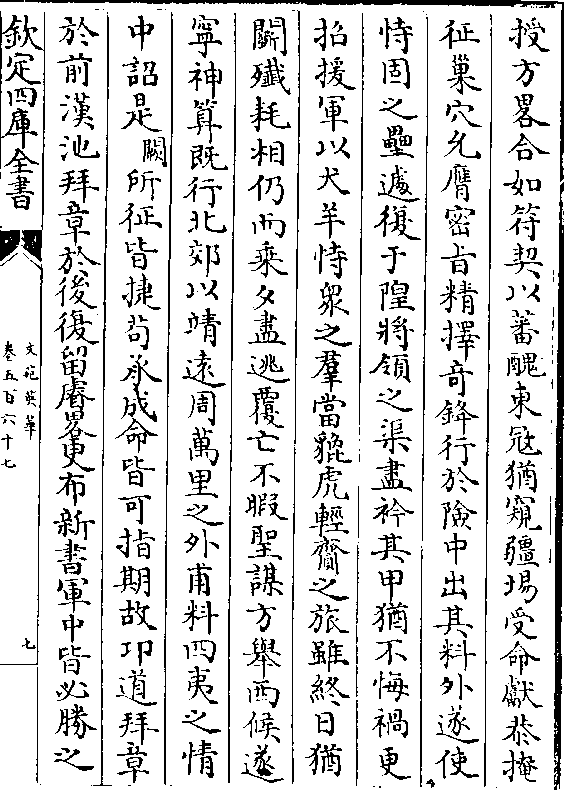 授方畧合如符契以蕃醜東冦猶窺疆場受命獻恭掩
征巢穴允膺密旨精擇奇鋒行於險中出其料外遂使
恃固之壘遽復于隍將領之渠盡衿其甲猶不悔禍更
招援軍以犬羊恃衆之羣當貔虎輕齎之旅雖終日猶
鬬殲耗相仍而乘夕盡逃覆亡不暇聖謀方舉西候遂
寧神算既行北郊以靖遠周萬里之外甫料四夷之情
中詔是闕所征皆捷茍承成命皆可指期故邛道拜章
於前漢池拜章於後復留睿畧更布新書軍中皆必勝之
欽定四庫全書
文苑英華
卷五百六十七
七